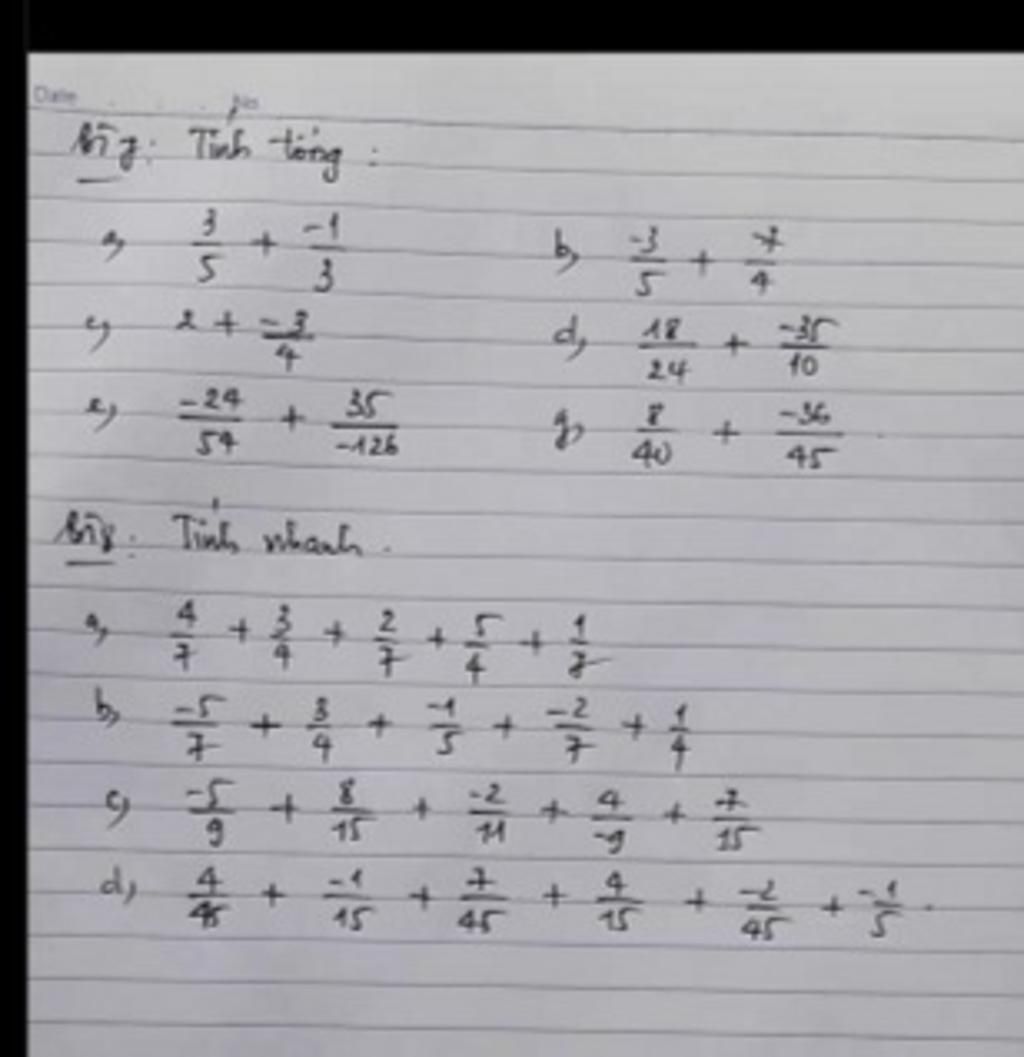 Date No
Bài 7: Tính tổng:
a) 3/5 + -1/3 b) -3/5 + 7/4
c) 2 + -3/4 d) 18/24 + -35/10
e) -24/54 + 35/-126 g) 8/40 + -36/45
Bài 8: Tính nhanh.
a) 4/7 + 3/4 + 2/7 + 5/4 + 1/7
b) -5/7 + 3/4 + -1/5 + -2/7 + 1/4
c) -5/9 + 8/15 + -2/11 + 4/-9 + 7/15
d) 4/45 + -1/15 + 7/45 + 4/15 + -2/45 + -1/5.